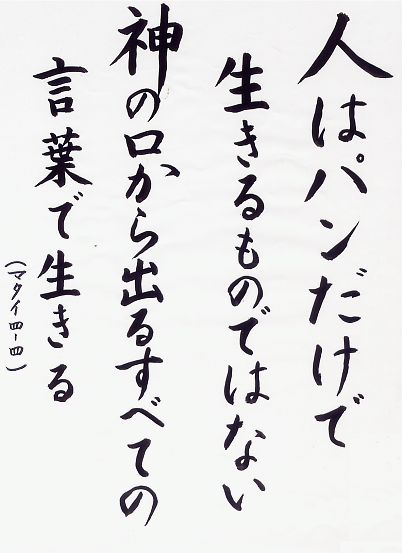 人はパンだけで
生きるものではない
神の口から出るすべての
言葉で生きる
(マタイ四ー四)